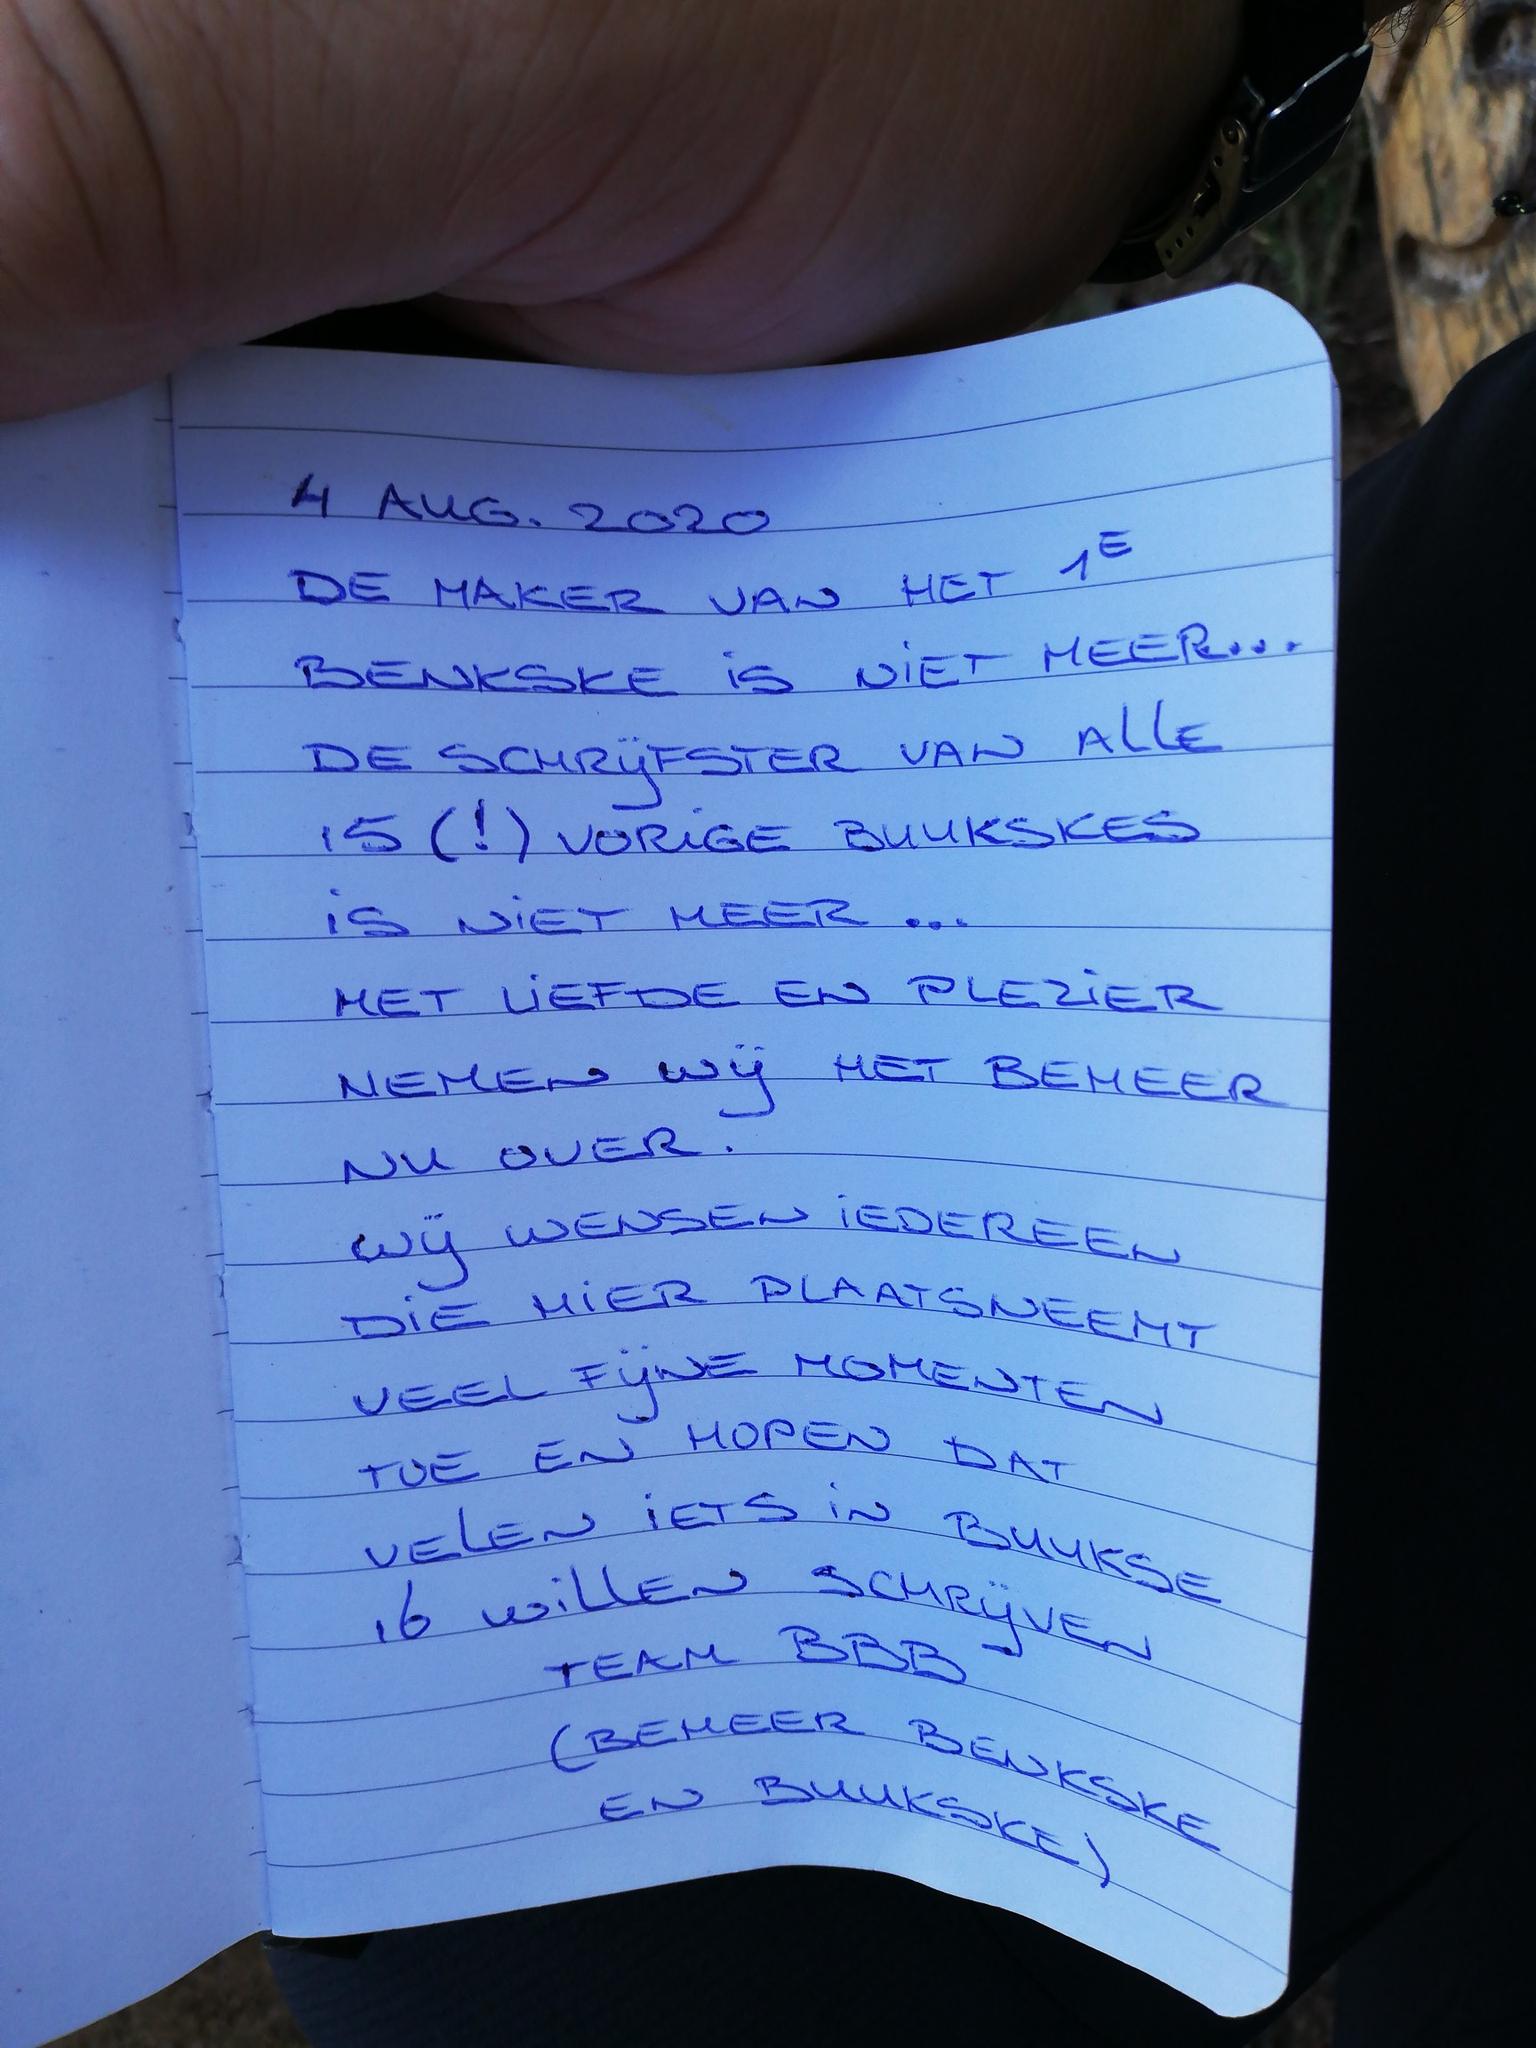 4 AUG. 2020
DE MAKER VAN HET 1E
BENKSKE IS NIET MEER...
DE SCHRIJFSTER VAN ALLE
15 (!) VORIGE BUUKSKES
IS NIET MEER ...
MET LIEFDE EN PLEZIER
NEMEN WIJ HET BEHEER
NU OVER.
WIJ WENSEN IEDEREEN
DIE HIER PLAATSNEEMT
VEEL FIJNE MOMENTEN
TOE EN HOPEN DAT
VELEN IETS IN BUUKSE
16 WILLEN SCHRIJVEN
TEAM BBB
(BEHEER BENKSKE
EN BUUKSKE)